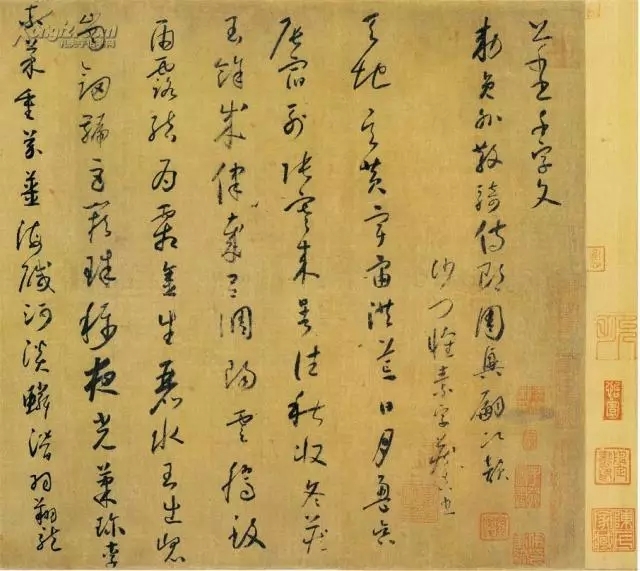 千字文
勅員外散騎侍郎周興嗣次韻
沙門懷素字藏真書
天地玄黃宇宙洪荒日月盈昃
辰宿列張寒來暑往秋收冬藏
閏餘成歲律呂調陽雲騰致
雨露結為霜金生麗水玉出崑
崗劍號巨闕珠稱夜光菓珍李
柰菜重芥薑海鹹河淡鱗潛羽翔龍